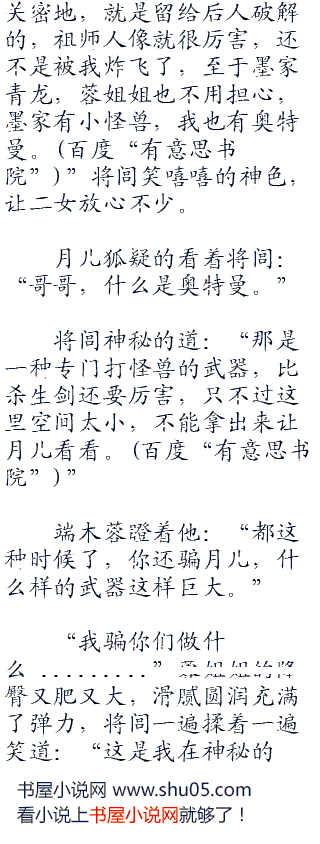 关密地，就是留给后人破解
的，祖师人像就很厉害，还
不是被我炸飞了，至于墨家
青龙，蓉姐姐也不用担心，
墨家有小怪兽，我也有奥特
曼。(百度“有意思书
院”)”将闾笑嘻嘻的神色，
让二女放心不少。
月儿狐疑的看着将闾：
“哥哥，什么是奥特曼。”
将闾神秘的道：“那是
一种专门打怪兽的武器，比
杀生剑还要厉害，只不过这
里空间太小，不能拿出来让
月儿看看。(百度“有意思书
院”)”
端木蓉瞪着他：“都这
种时候了，你还骗月儿，什
么样的武器这样巨大。”
“我骗你们做什
么 .........” 姐姐的
臀又肥又大，滑腻圆润充满
了弹力，将闾一遍揉着一遍
笑道：“这是我在神秘的
书屋小说网 www.shu05.com
看小说上书屋小说网就够了！